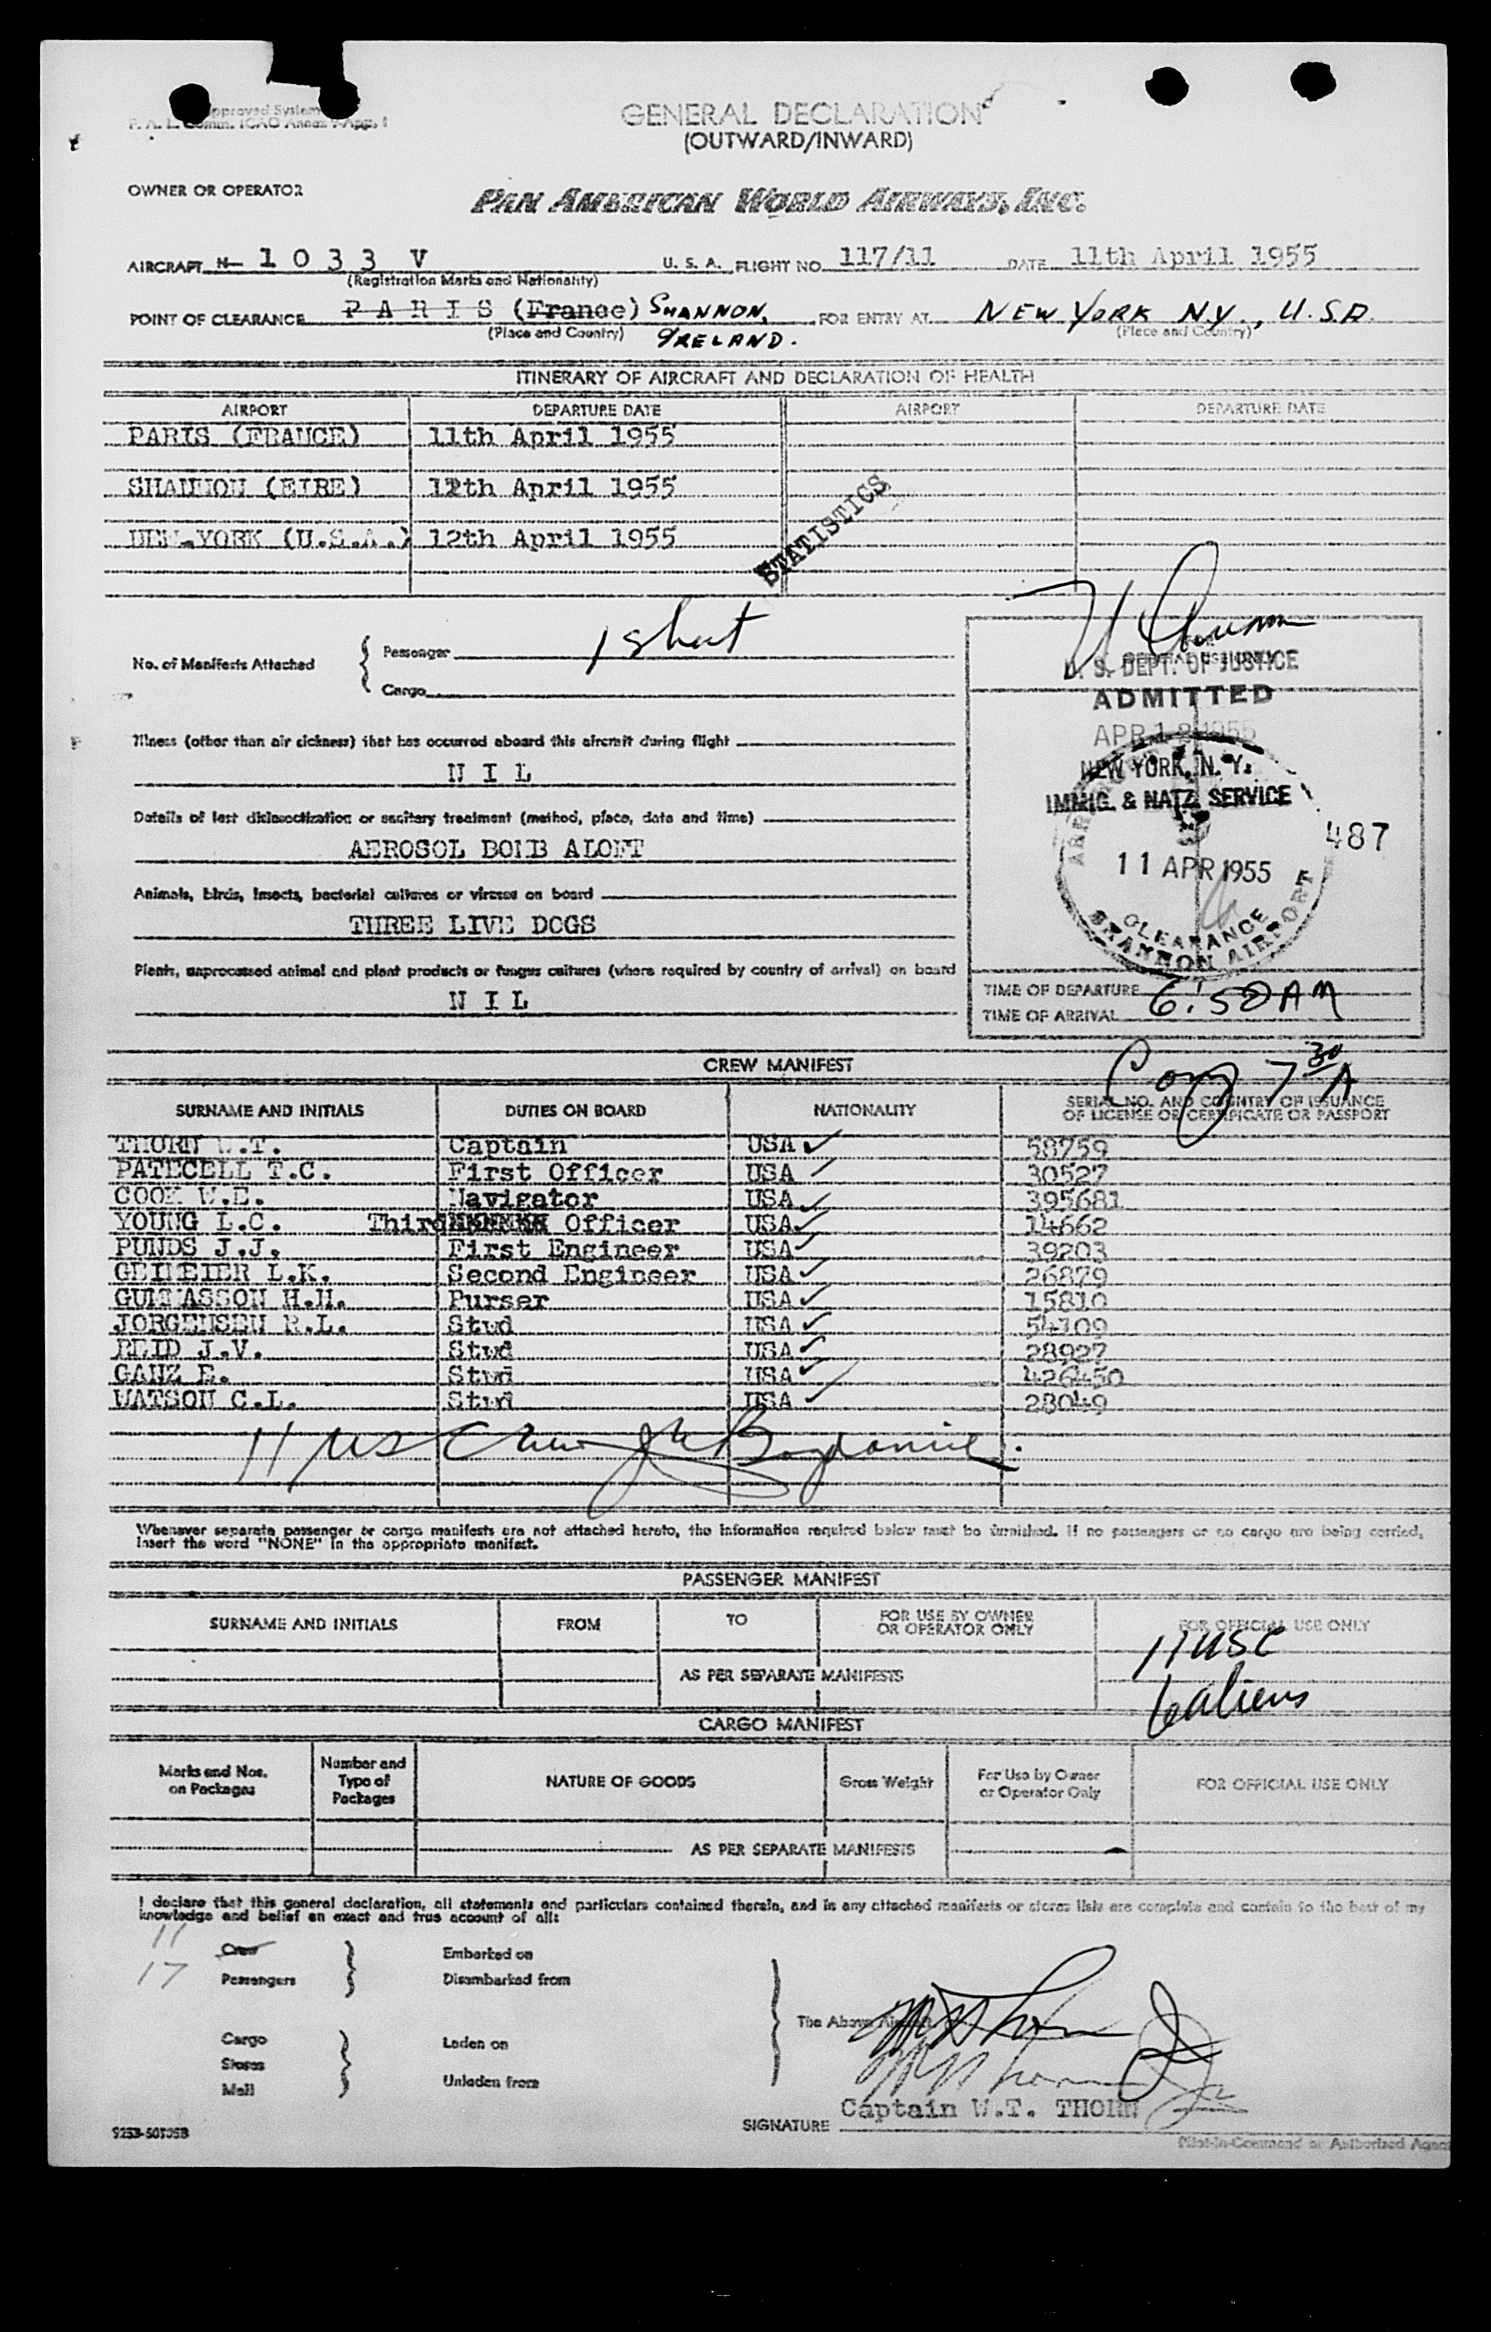 Approved System
F. A. L. Comm. ICAO Annex 9-App. 1
GENERAL DECLARATION
(OUTWARD/INWARD)
OWNER OR OPERATOR
PAN AMERICAN WORLD AIRWAYS, INC.
AIRCRAFT N- 1 0 3 3 V U. S. A. FLIGHT NO. 117/11 DATE 11th April 1955
(Registration Marks and Nationality)
POINT OF CLEARANCE P A R I S (France) SHANNON, FOR ENTRY AT NEW YORK N.Y., U.S.A.
(Place and Country) IRELAND. (Place and Country)
ITINERARY OF AIRCRAFT AND DECLARATION OF HEALTH
AIRPORT DEPARTURE DATE AIRPORT DEPARTURE DATE
PARIS (FRANCE) 11th April 1955
SHANNON (EIRE) 12th April 1955
NEW-YORK (U.S.A.) 12th April 1955
STATISTICS
No. of Manifests Attached
Passenger 1 sheet
Cargo
U. S. DEPT. OF JUSTICE
ADMITTED
NEW YORK, N. Y.
IMMIG. & NATZ. SERVICE
487
11 APR 1955
CLEARANCE
SHANNON AIRPORT
Illness (other than air sickness) that has occurred aboard this aircraft during flight
N I L
Details of last disinsectization or sanitary treatment (method, place, date and time)
AEROSOL BOMB ALOFT
Animals, birds, insects, bacterial cultures or viruses on board
THREE LIVE DOGS
Plants, unprocessed animal and plant products or fungus cultures (where required by country of arrival) on board
N I L
TIME OF DEPARTURE 6:50 AM
TIME OF ARRIVAL
7 30 A
CREW MANIFEST
SURNAME AND INITIALS DUTIES ON BOARD NATIONALITY SERIAL NO. AND COUNTRY OF ISSUANCE
OF LICENSE OR CERTIFICATE OR PASSPORT
THORN W.T. Captain USA 58759
PATECELL T.C. First Officer USA 30527
COOK W.E. Navigator USA 395681
YOUNG L.C. Third Officer USA 14662
PUNDS J.J. First Engineer USA 39203
GEHEIER L.K. Second Engineer USA 26879
GUSTASSON H.H. Purser USA 15810
JORGENSEN R.L. Stwd USA 54109
REID J.V. Stwd USA 28927
GANZ E. Stwd USA 426450
WATSON C.L. Stwd USA 28049
11 US Crew
Whenever separate passenger or cargo manifests are not attached hereto, the information required below must be furnished. If no passengers or no cargo are being carried,
insert the word "NONE" in the appropriate manifest.
PASSENGER MANIFEST
SURNAME AND INITIALS FROM TO FOR USE BY OWNER OR OPERATOR ONLY FOR OFFICIAL USE ONLY
11 USC
AS PER SEPARATE MANIFESTS
6 aliens
CARGO MANIFEST
Marks and Nos. on Packages Number and Type of Packages NATURE OF GOODS Gross Weight For Use by Owner or Operator Only FOR OFFICIAL USE ONLY
AS PER SEPARATE MANIFESTS
I declare that this general declaration, all statements and particulars contained therein, and in any attached manifests or stores lists are complete and contain to the best of my
knowledge and belief an exact and true account of all:
11 Crew Embarked on
17 Passengers Disembarked from
The Above Aircraft
Cargo Laden on
Stores
Mail Unladen from
SIGNATURE Captain W.T. THORN
Pilot-in-Command or Authorized Agent